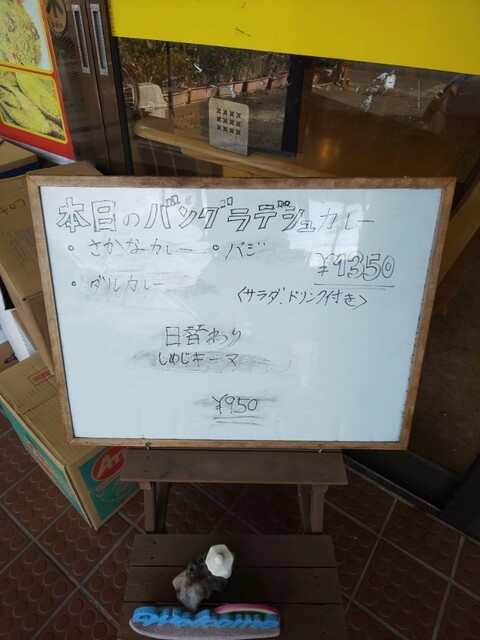 本日のバングラデシュカレー
・さかなカレー ・バジ
¥1350
・ダルカレー
<サラダ.ドリンク付き>
日替わり
しめじキーマ
¥950